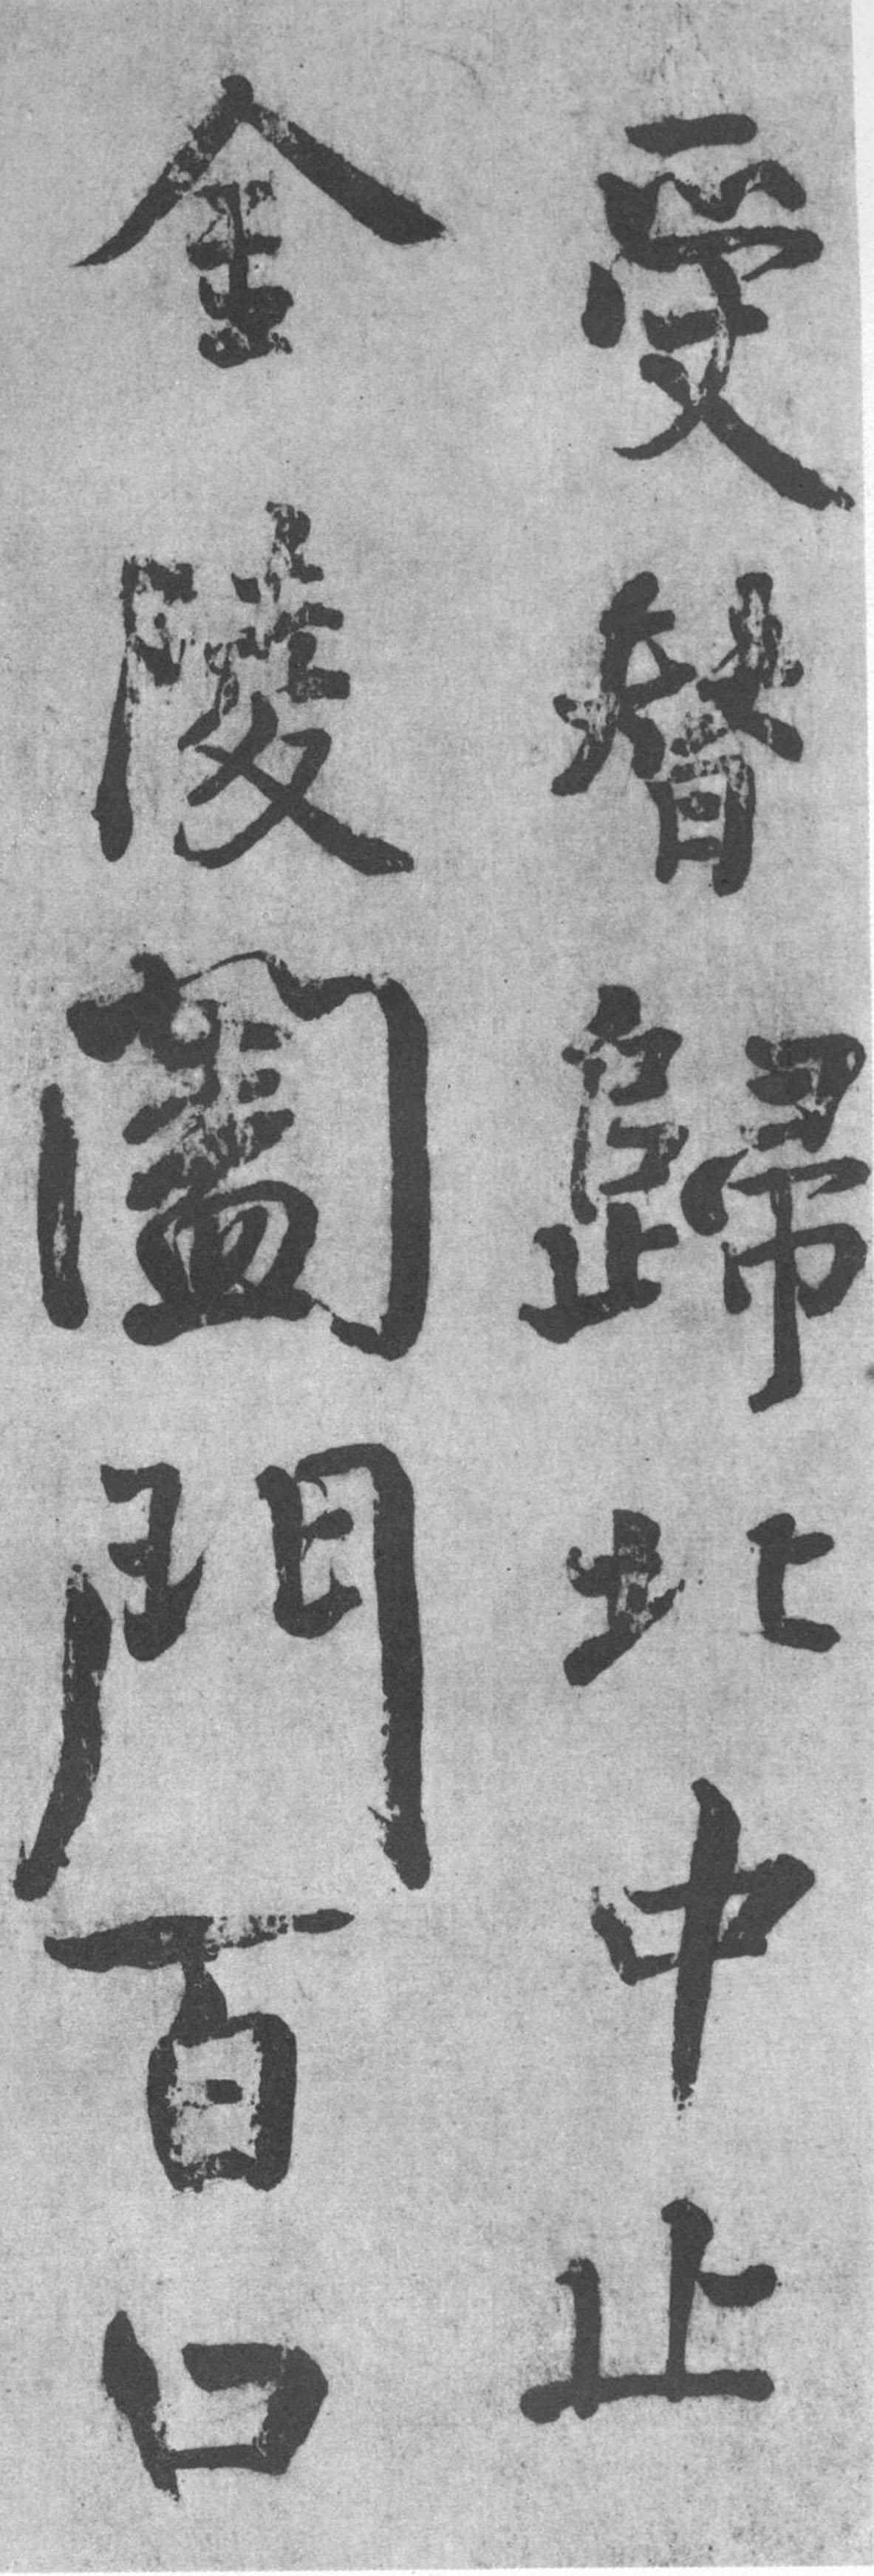 受替歸北中止
金陵闔門百口